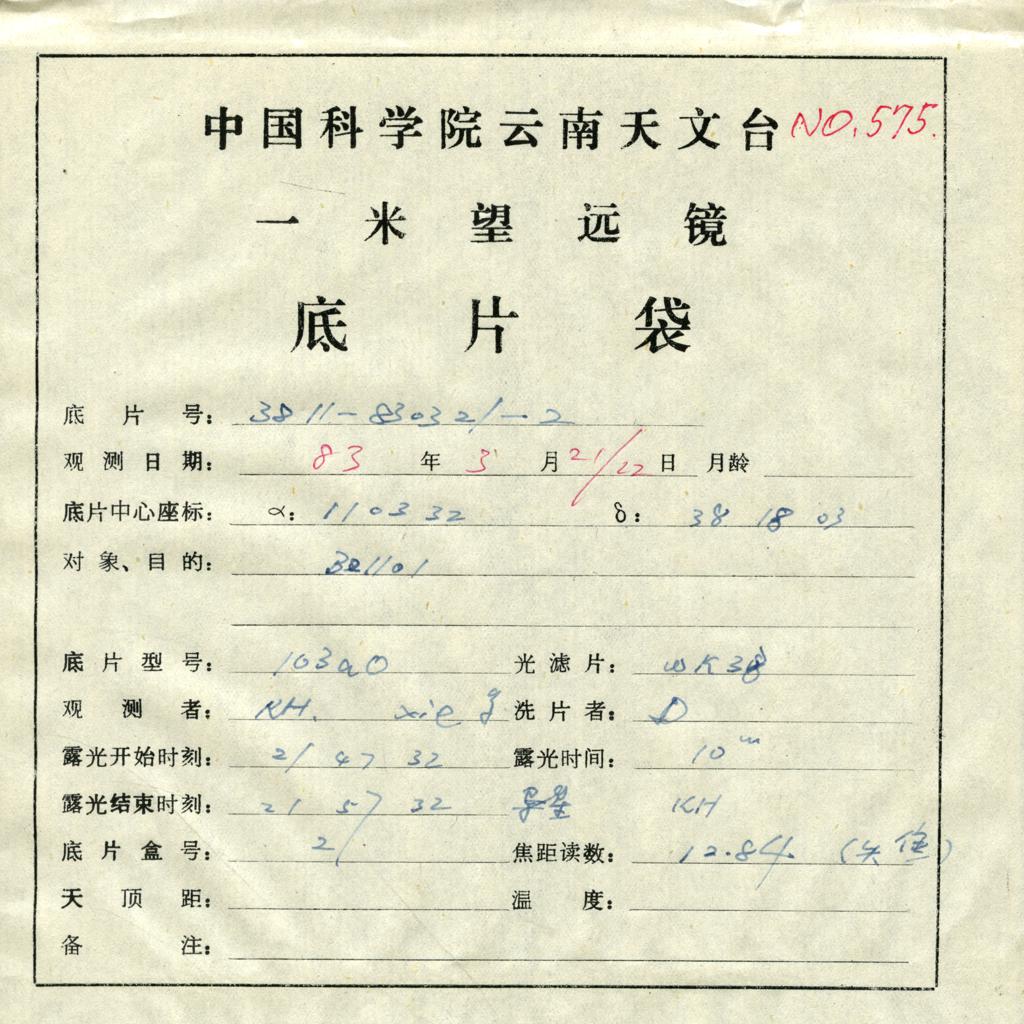 中国科学院云南天文台 NO.575.
一米望远镜
底片袋
底片号: 3811-830321-2
观测日期: 83 年 3 月 21/22 日 月龄
底片中心座标: α: 11 03 32 δ: 38 18 03
对象、目的:
底片型号: 103aO 光滤片: WK38
观测者: KH. xie g 洗片者: D
露光开始时刻: 21 47 32 露光时间: 10m
露光结束时刻: 21 57 32 导星 KH
底片盒号: 21 焦距读数: 12.84.
天顶距: 温度:
备注: